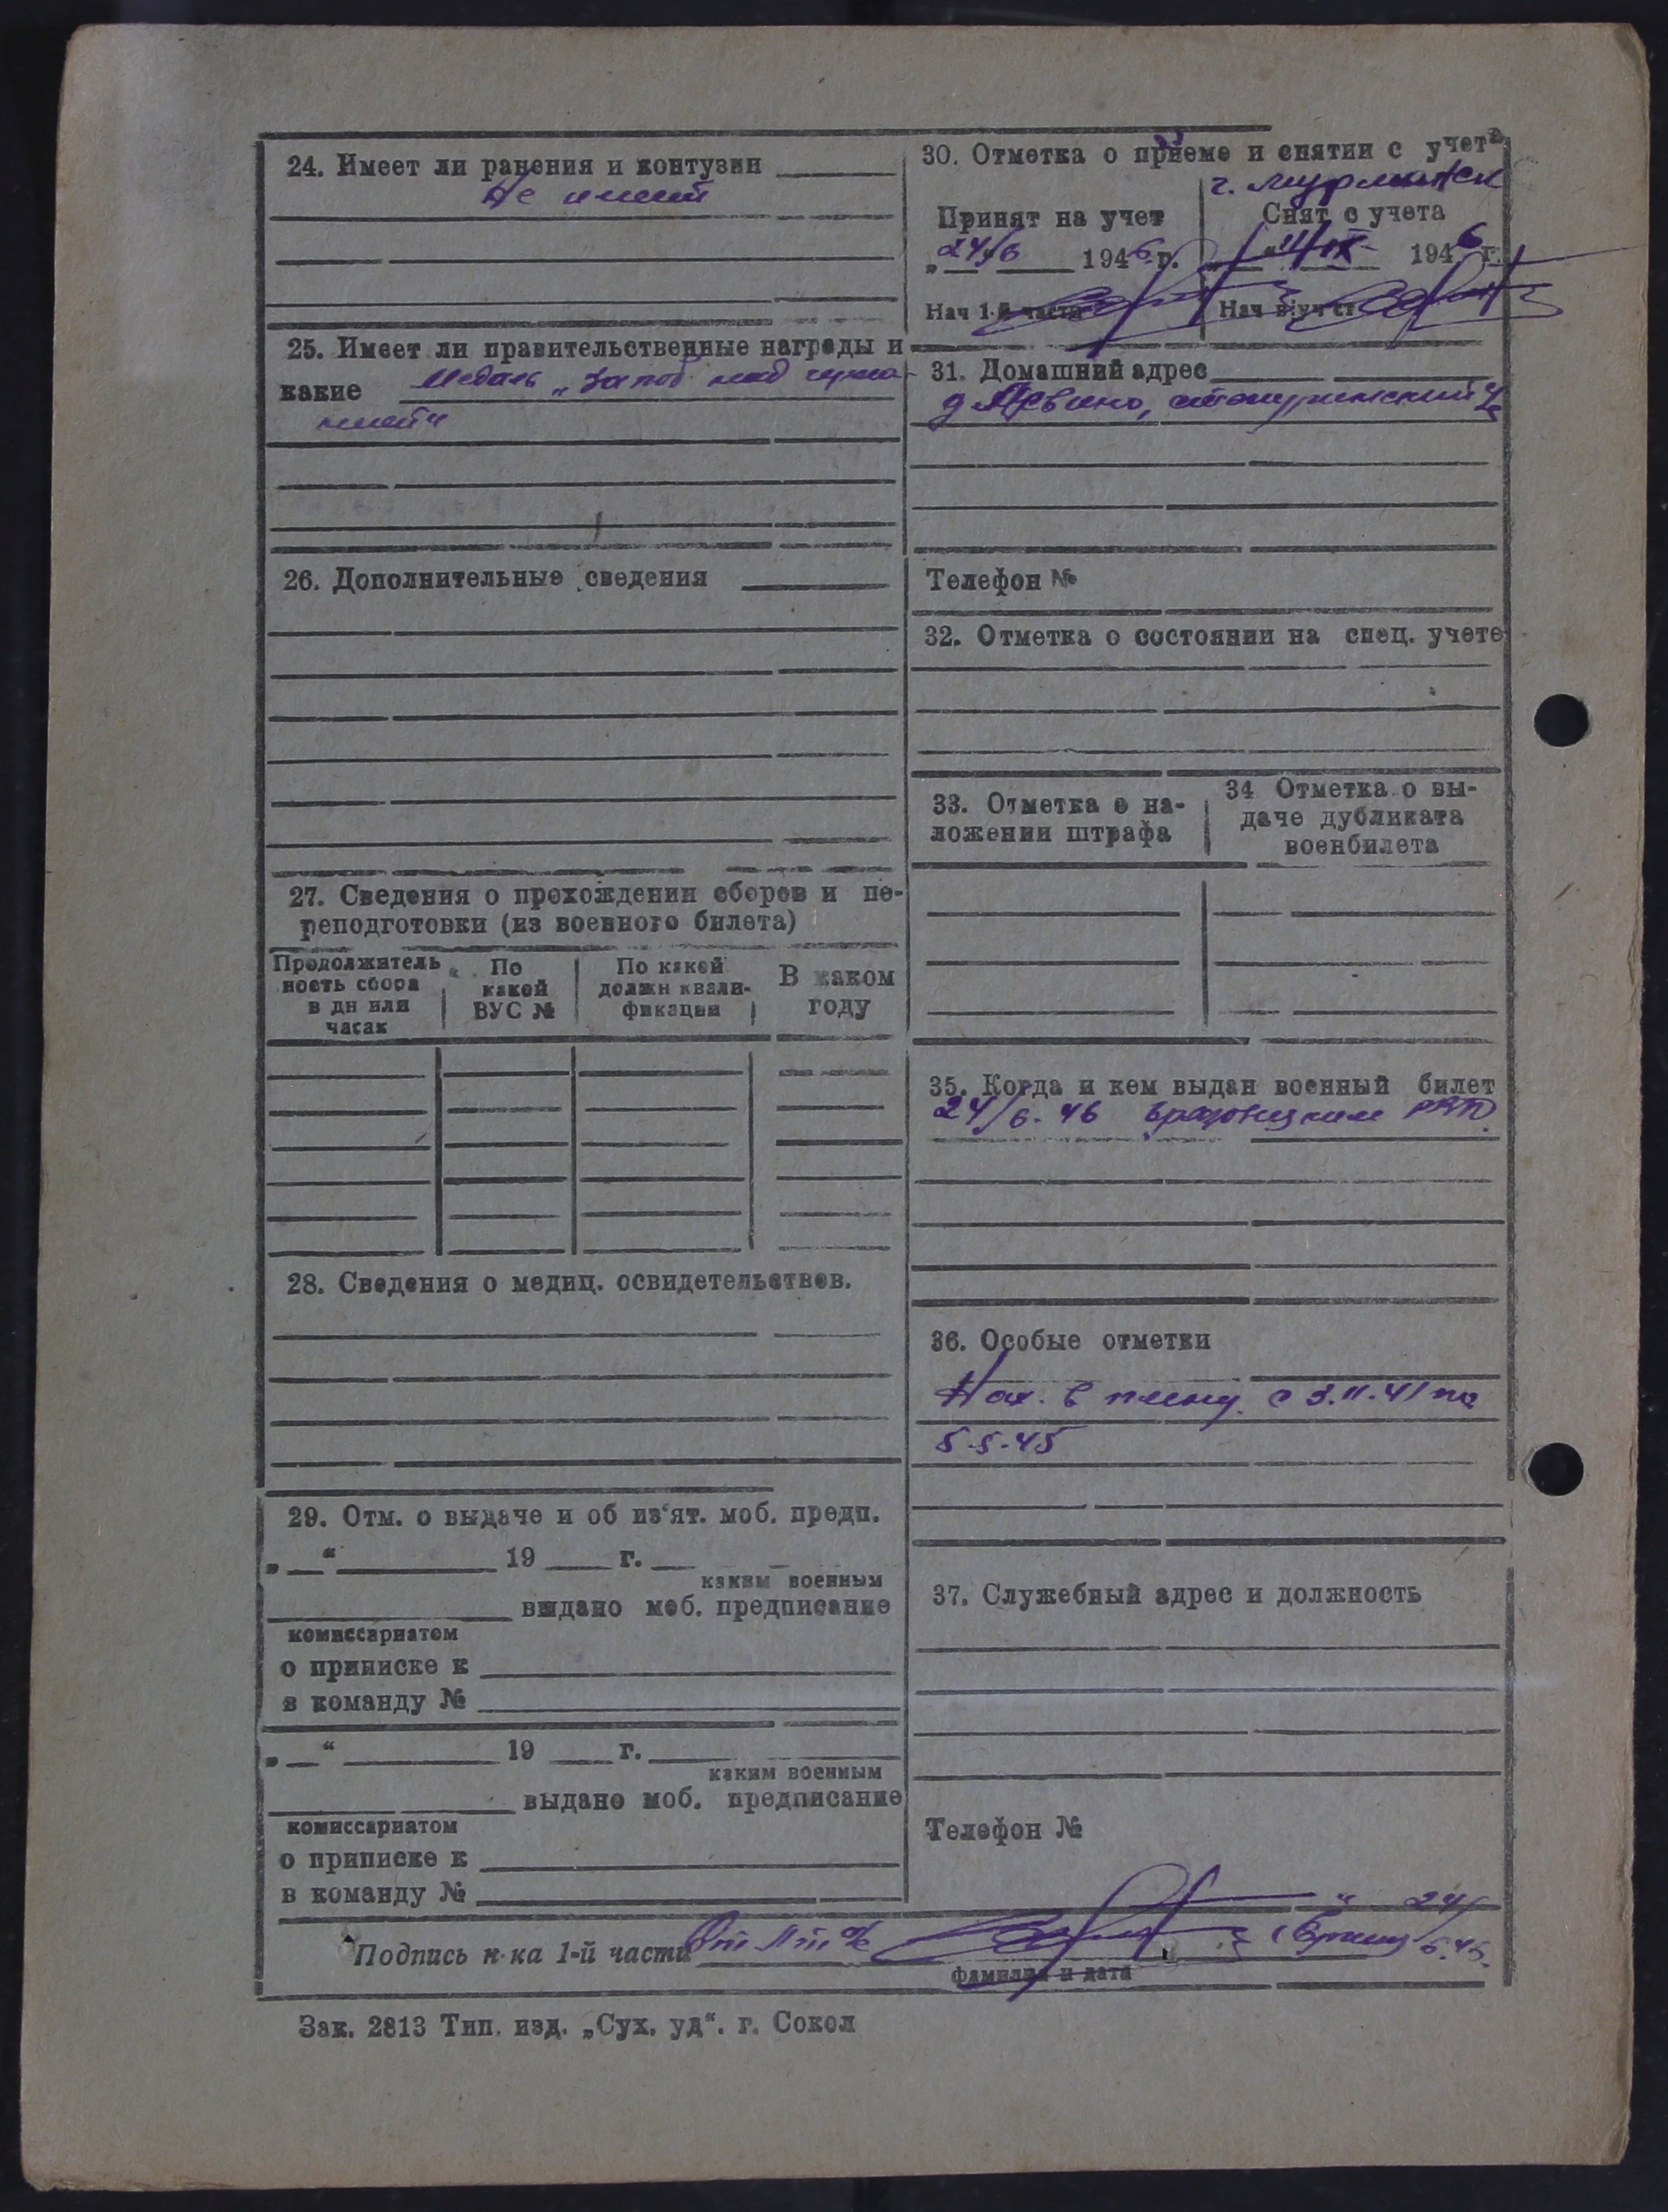 24. Имеет ли ранения и контузии
Не имеет
25. Имеет ли правительственные награды и
какие Медаль „За поб. над герма-
нией"
26. Дополнительные сведения
27. Сведения о прохождении сборов и пе-
реподготовки (из военного билета)
Продолжитель
ность сбора
в дн или
часах
По
какой
ВУС №
По какой
должн квали-
фикации
В каком
году
28. Сведения о медиц. освидетельствов.
29. Отм. о выдаче и об из'ят. моб. предп.
„ “ 19 г.
каким военным
выдано моб. предписание
комиссариатом
о приписке к
в команду №
„ “ 19 г.
каким военным
выдано моб. предписание
комиссариатом
о приписке к
в команду №
30. Отметка о приеме и снятии с учета
г. Мурманск
Принят на учет
24/6 1946 г.
Нач 1-й части
Снят с учета
11/IX 1946 г.
Нач в/уч ст
31. Домашний адрес
Телефон №
32. Отметка о состоянии на спец. учете
33. Отметка о на-
ложении штрафа
34 Отметка о вы-
даче дубликата
военбилета
35. Когда и кем выдан военный билет
24/6.46
36. Особые отметки
Нах. в плену с 3.11.41 по
5.5.45
37. Служебный адрес и должность
Телефон №
Подпись н-ка 1-й части
24/
6.46.
фамилия и дата
Зак. 2813 Тип. изд. „Сух. уд“. г. Сокол